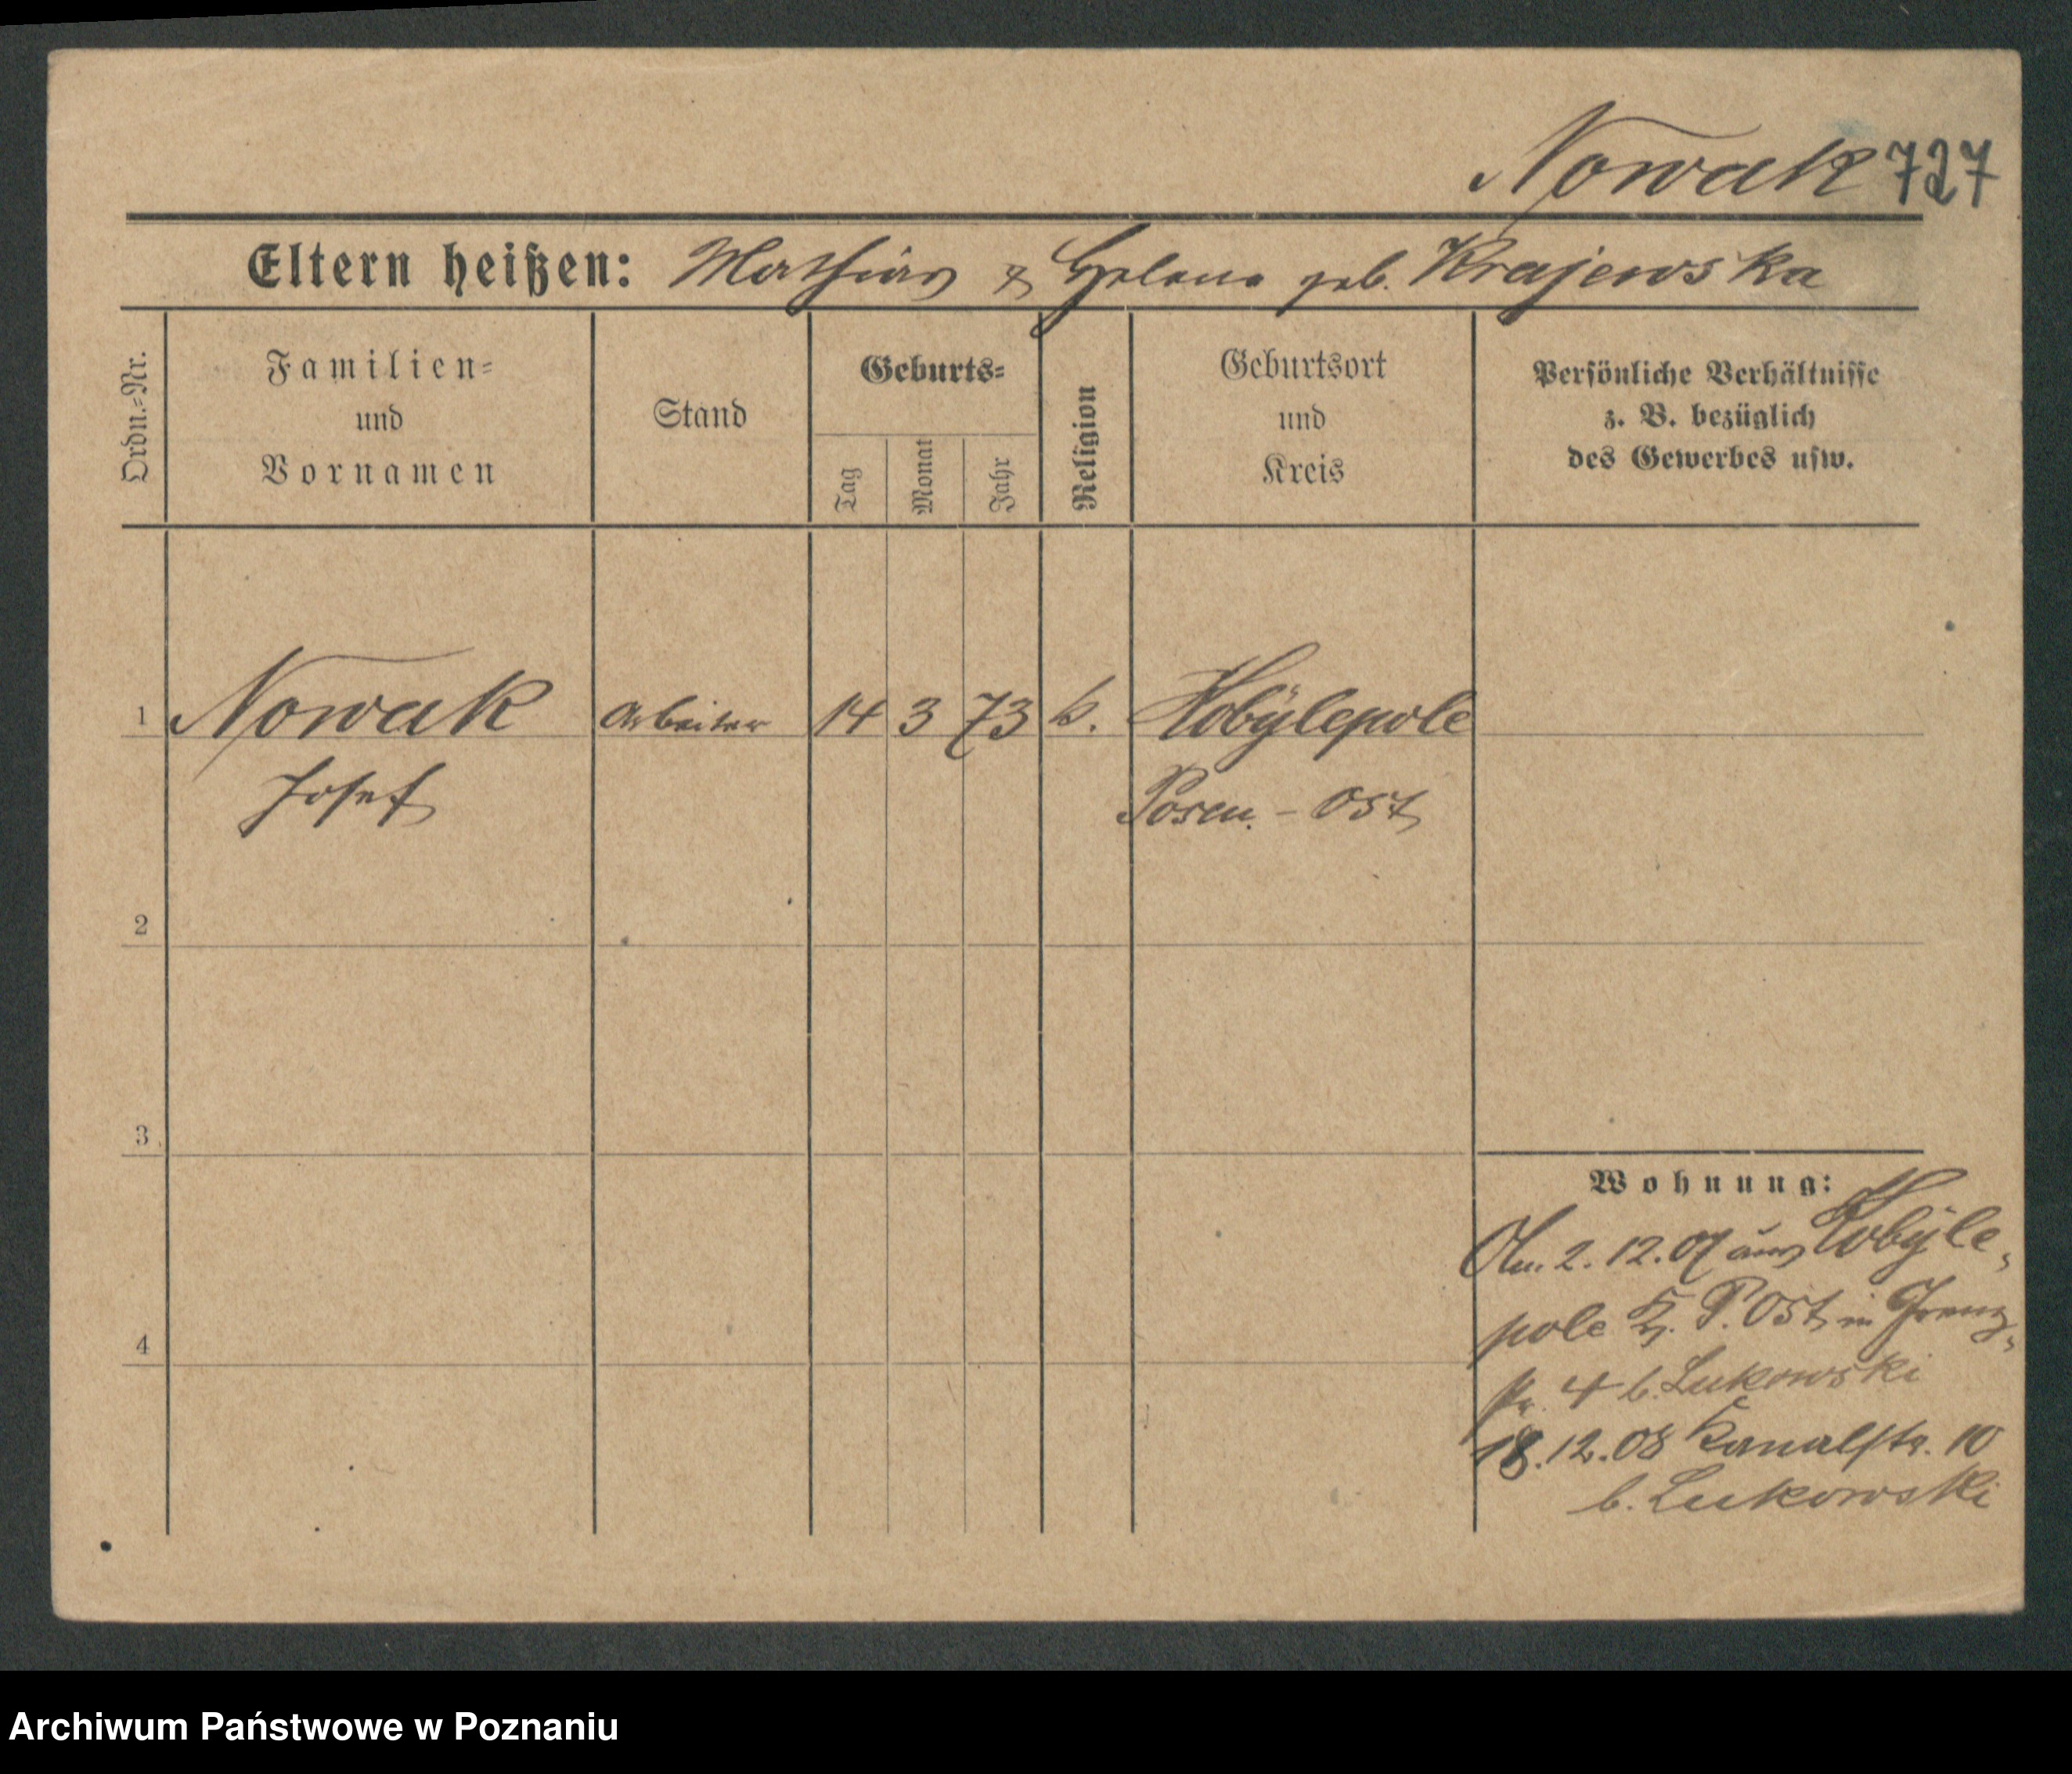 Nowak 727
Eltern heißen: Mathias & Helena geb. Krajewska
Ordn.-Nr.
Familien-
und
Vornamen
Stand
Geburts-
Tag
Monat
Jahr
Religion
Geburtsort
und
Kreis
Persönliche Verhältnisse
z. B. bezüglich
des Gewerbes usw.
1 Nowak Arbeiter 14 3 73 k. Kobylepole
Josef Posen - Ost
2
3
4
Wohnung:
2.12.07 aus Kobyle-
pole K. P. Ost in Grenz-
str. 4 b. Lukowski
18.12.08 Kanalstr. 10
b. Lukowski
Archiwum Państwowe w Poznaniu